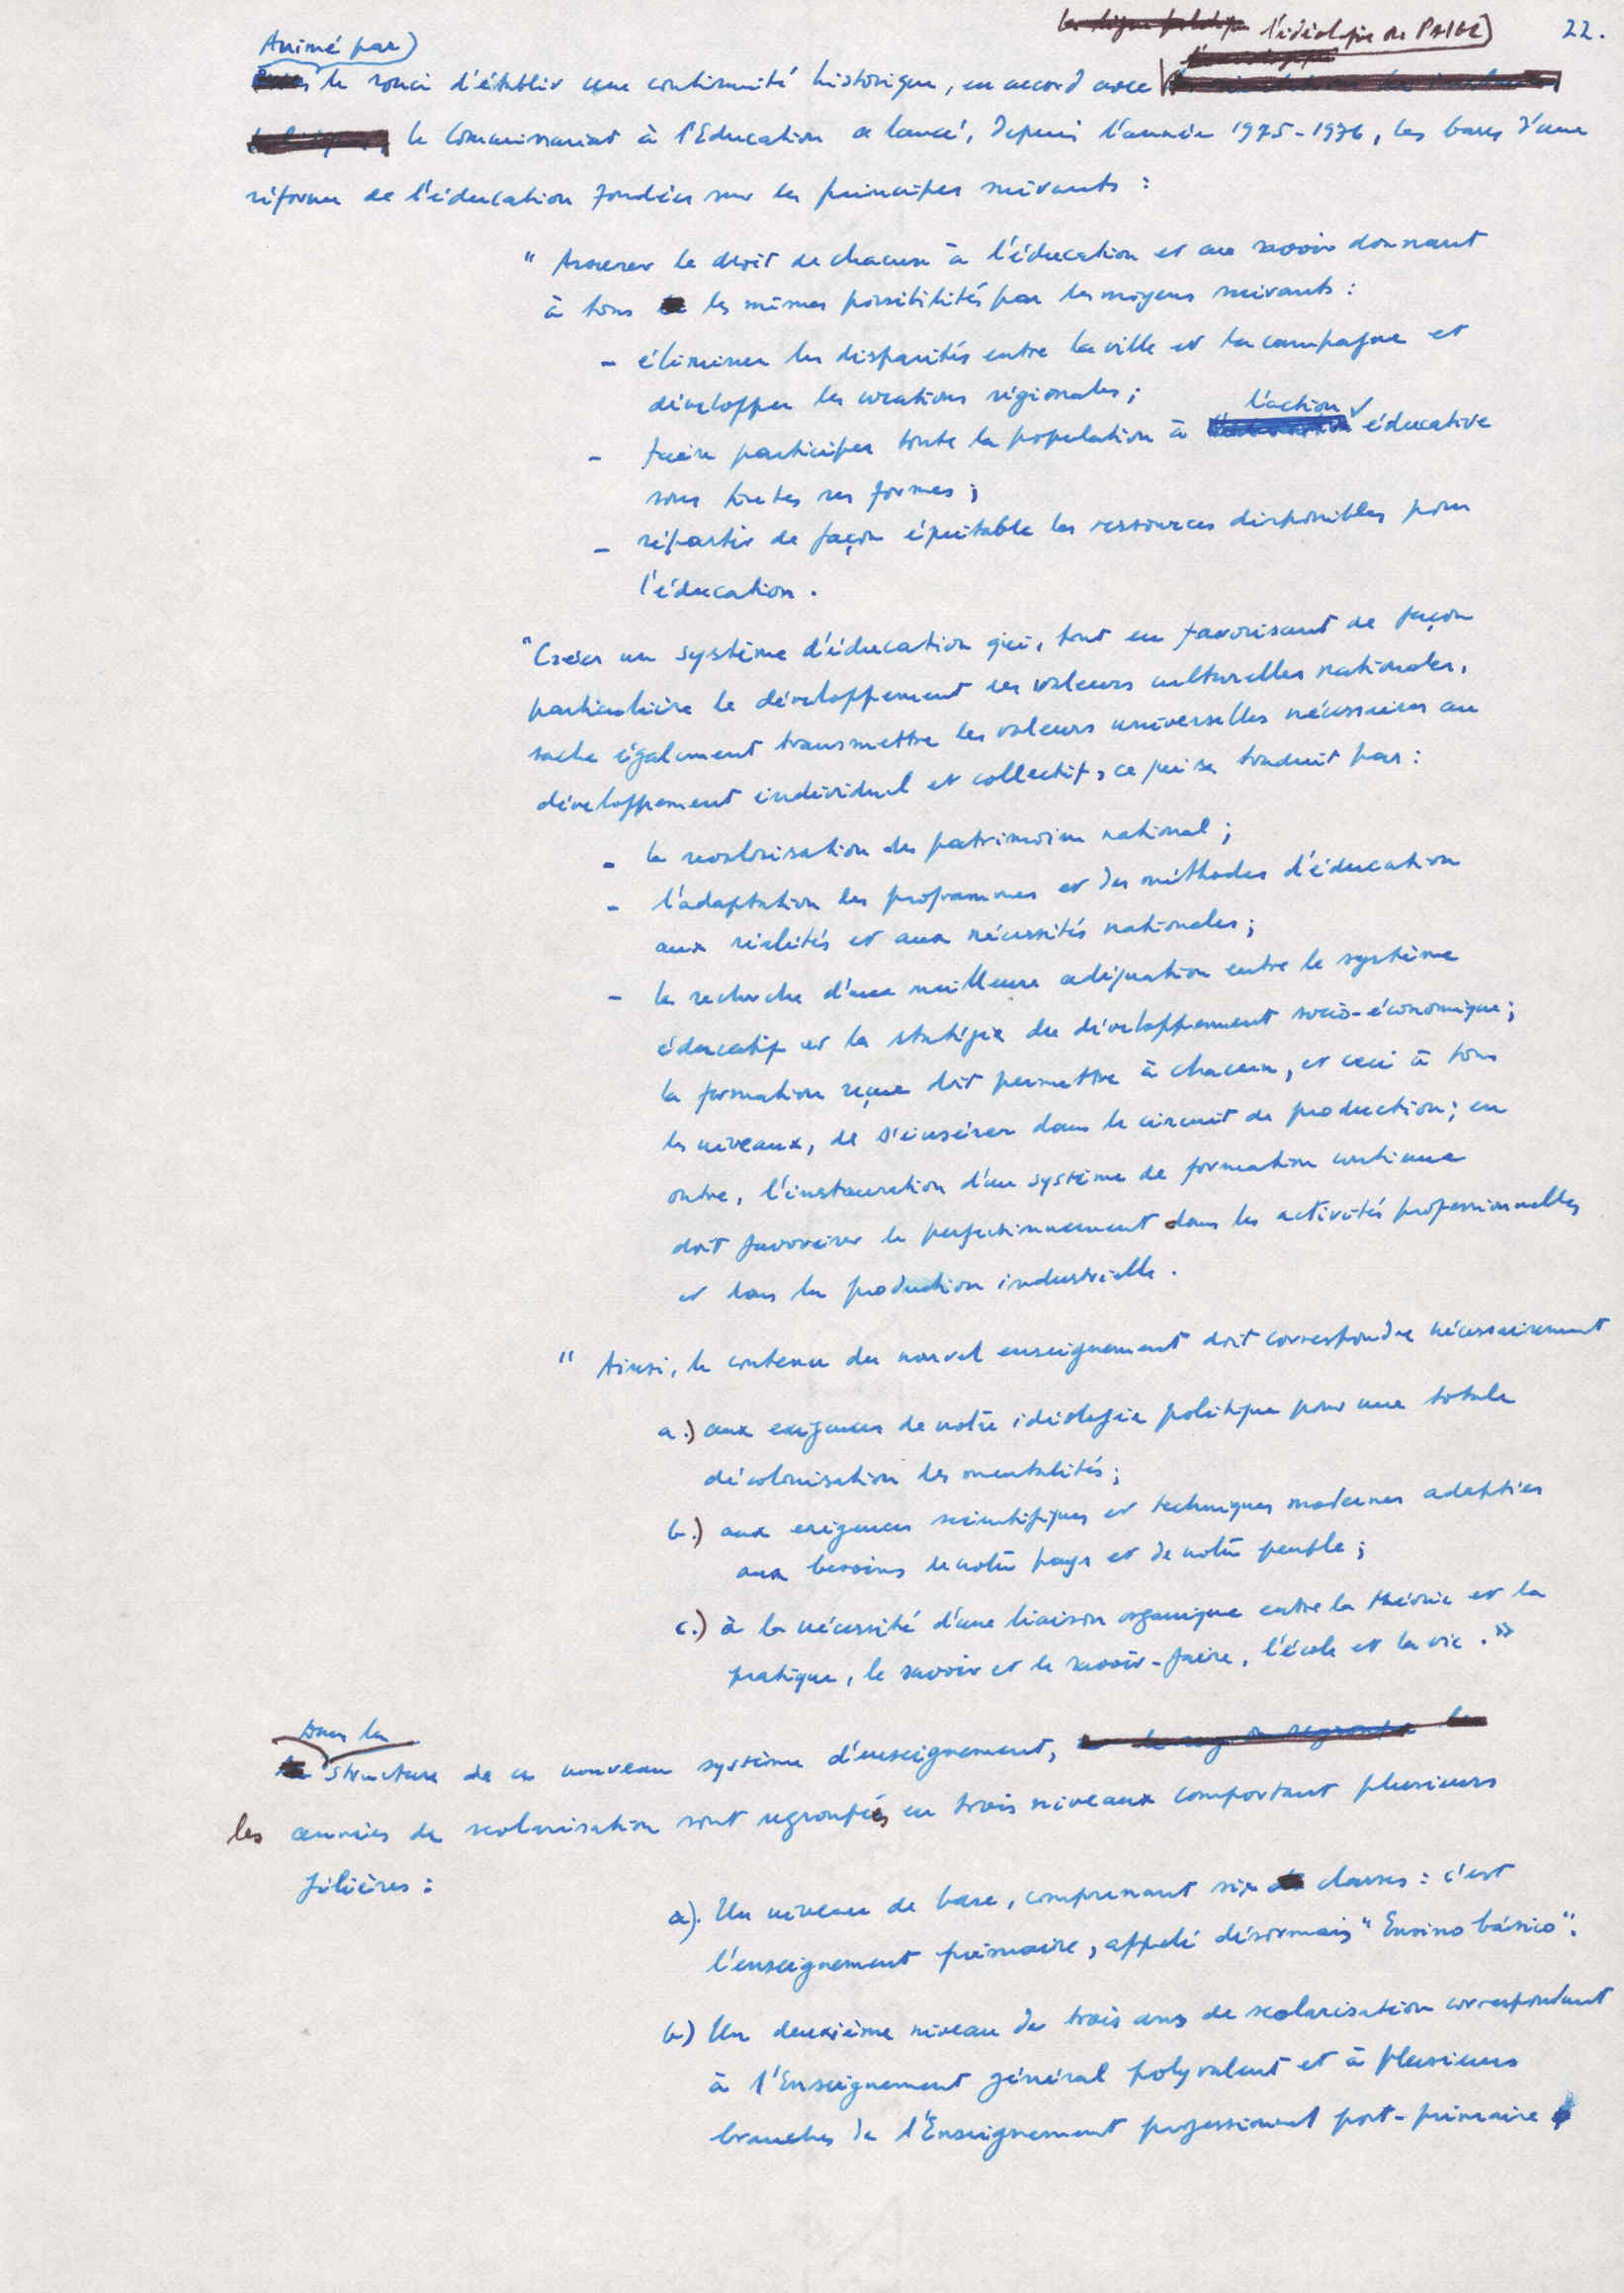 22.
l'idéologie du PAIGC
Animé par
le souci d'établir une continuité historique, en accord avec
le Commissariat à l'Education a lancé, depuis l'année 1975-1976, les bases d'une
réforme de l'éducation fondée sur les principes suivants :
" Assurer le droit de chacun à l'éducation et au savoir donnant
à tous les mêmes possibilités par les moyens suivants :
- éliminer les disparités entre la ville et la campagne et
développer les vocations régionales ;
l'action
- faire participer toute la population à éducative
sous toutes ses formes ;
- répartir de façon équitable les ressources disponibles pour
l'éducation .
" Créer un système d'éducation qui, tout en favorisant de façon
particulière le développement des valeurs culturelles nationales,
sache également transmettre les valeurs universelles nécessaires au
développement individuel et collectif, ce qui se traduit par :
- la revalorisation du patrimoine national ;
- l'adaptation des programmes et des méthodes d'éducation
aux réalités et aux nécessités nationales ;
- la recherche d'une meilleure adéquation entre le système
éducatif et la stratégie du développement socio-économique ;
la formation reçue doit permettre à chacun, et ceci à tous
les niveaux, de s'insérer dans le circuit de production ; en
outre, l'instauration d'un système de formation continue
doit favoriser le perfectionnement dans les activités professionnelles
et dans la production industrielle .
" Ainsi, le contenu du nouvel enseignement doit correspondre nécessairement
a.) aux exigences de notre idéologie politique pour une totale
décolonisation des mentalités ;
b.) aux exigences scientifiques et techniques modernes adaptées
aux besoins de notre pays et de notre peuple ;
c.) à la nécessité d'une liaison organique entre la théorie et la
pratique, le savoir et le savoir-faire, l'école et la vie . »
Dans la
structure de ce nouveau système d'enseignement,
les années de scolarisation sont regroupées en trois niveaux comportant plusieurs
filières :
a). Un niveau de base, comprenant six classes : c'est
l'enseignement primaire, appelé désormais " Ensino básico ".
b) Un deuxième niveau de trois ans de scolarisation correspondant
à l'Enseignement général polyvalent et à plusieurs
branches de l'Enseignement professionnel post-primaire